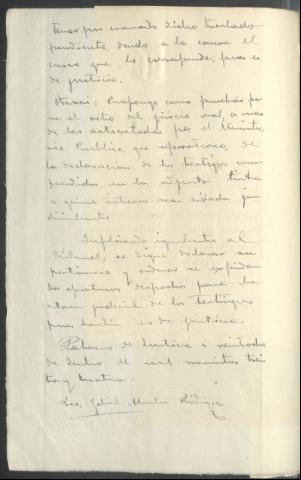 tener por evacuado dicho traslado
pendiente, dando a la causa el
curso que le corresponde, pues es
de justicia.
Otrosi: Propongo como prueba pa
ra el acto del juicio oral, a mas
de las articuladas por el Ministe
rio Publico que reproduzco, de
la declaracion de los testigos com
prendidos en la adjunta lista
a quienes intereso sean citados ju
dicialmente
Suplicando igualmente al
Tribunal, se digne declarar su
pertinencia y ordenar se expidan
los oportunos despachos para la
citacion judicial de los testigos
pues tambien es de justicia.
Palacio de Justicia a veintiocho
de Junio de mil novecientos trein
ta y cuatro.
Lic. Gabriel